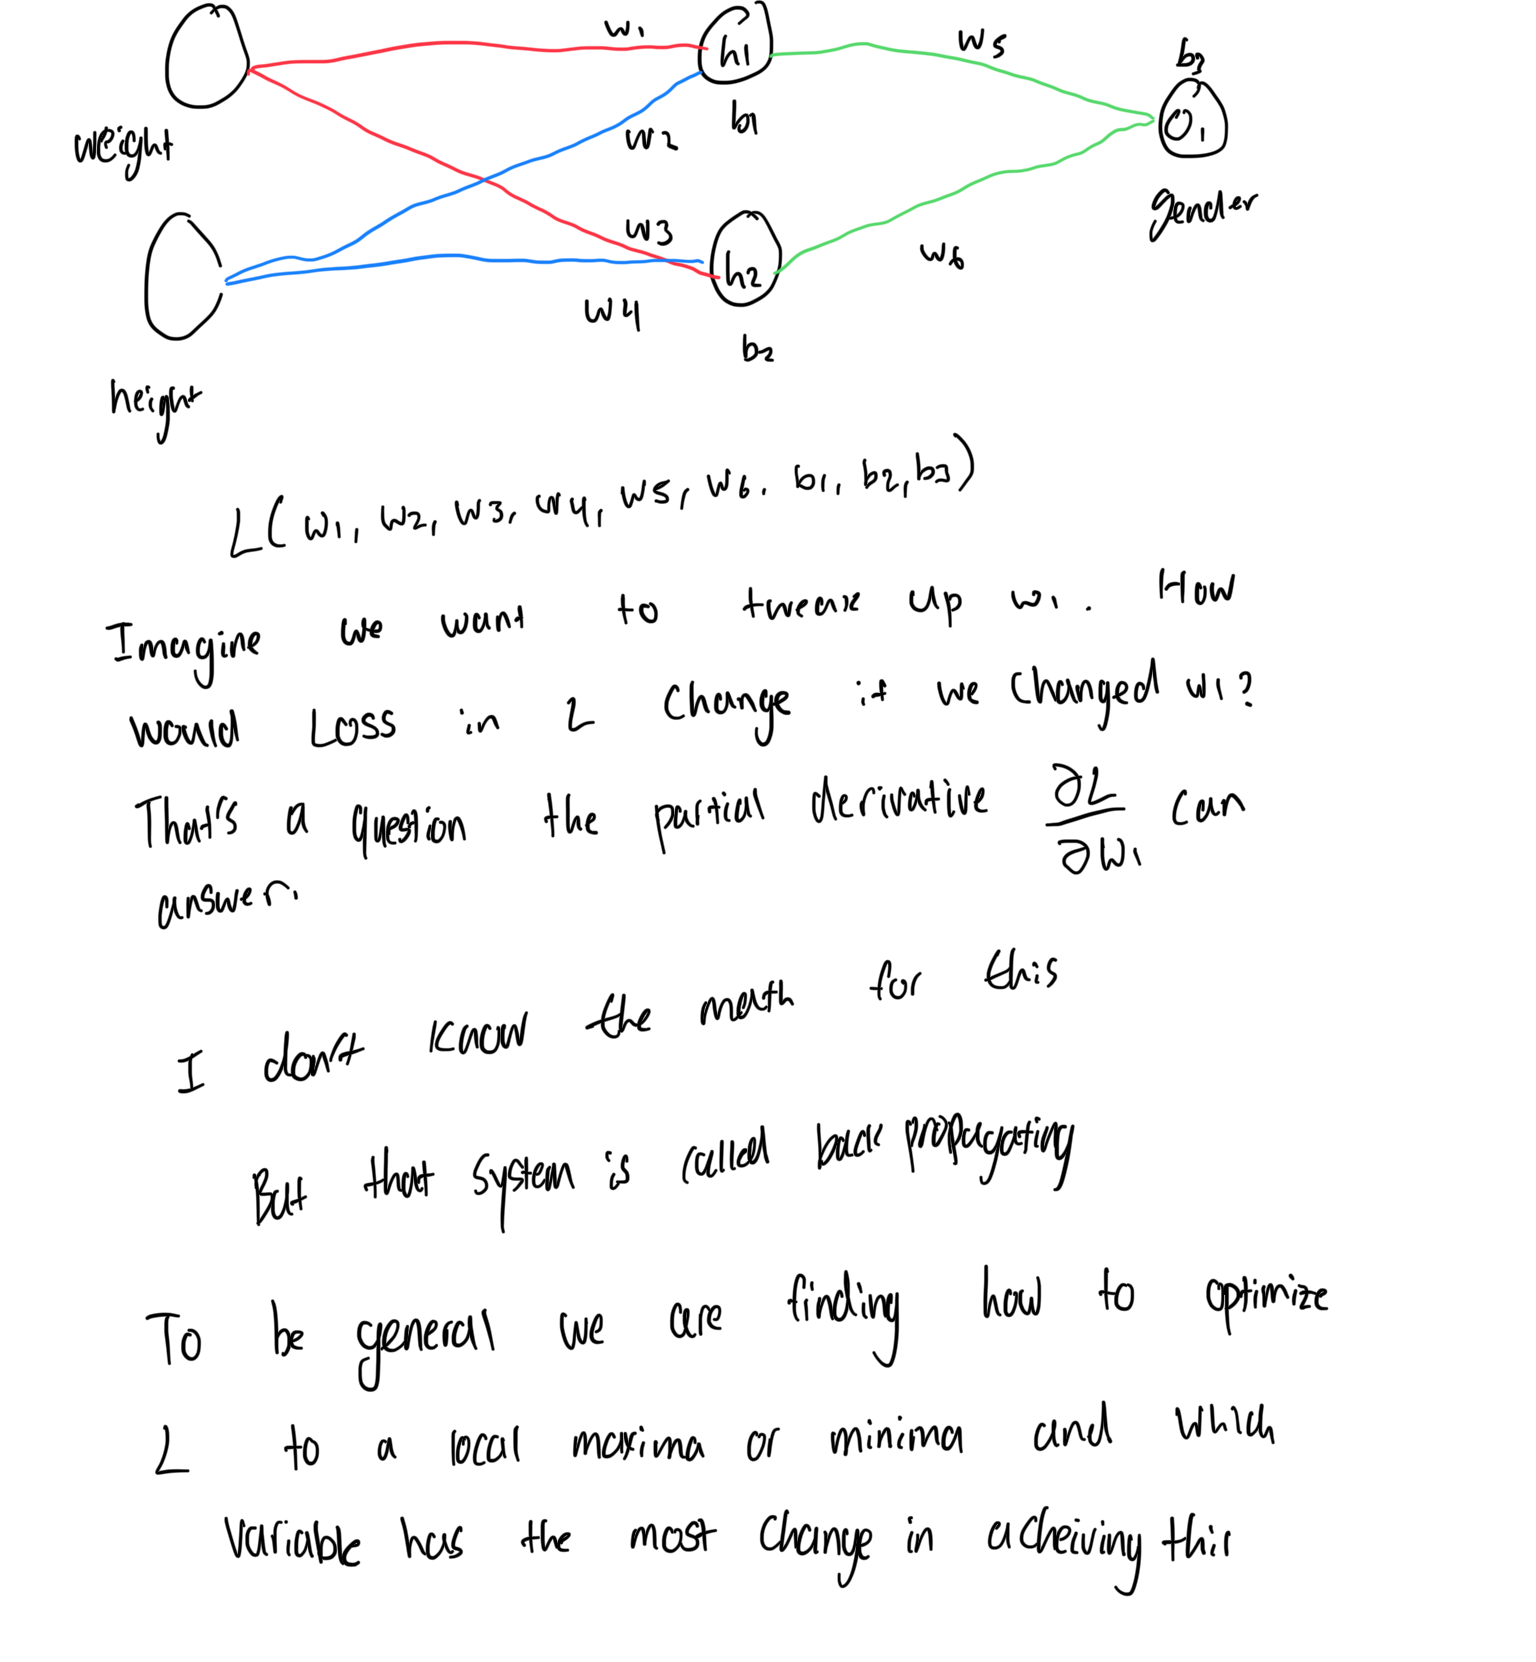 w1
h1
b1
w5
b3
O1
gender
weight
w2
w3
h2
b2
w4
w6
height
L( w1, w2, w3, w4, w5, w6. b1, b2, b3)
Imagine we want to tweak up w1. How
would Loss in L change if we changed w1?
That's a question the partial derivative ∂L/∂w1 can
answer.
I don't know the math for this
But that system is called back propagating
To be general we are finding how to optimize
L to a local maxima or minima and which
variable has the most change in acheiving this